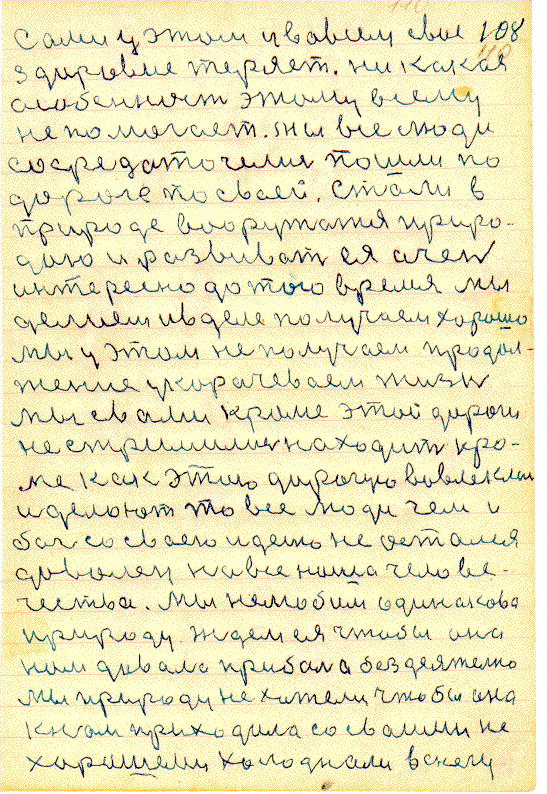 сами у этом и вовсем свое 108
здоровие теряет. ни какая
особенност этому всему
непомогает. мы все люди
сосредаточелися пошли по
дороге по своей. стали в
природе вооружатся приро-
дою и развиват ея очен
интересно до того время мы
делаем и в деле получаем хорошо
мы у этом не получаем продол-
жение укорачеваем жизн
мы свами кроме этой дороги
не стримилися находит кро-
ме как этою дорогую вовлеклис
и делоют то все люди чем и
бог со своею идею не остался
доволен на все наша челове-
чества. мы нелюбим одинакова
природу ждем ея чтобы она
нам довала прибыла без деятелно
мы природу не хотели чтобы она
к нам приходила со своими не
хорошеми холоднами в снегу